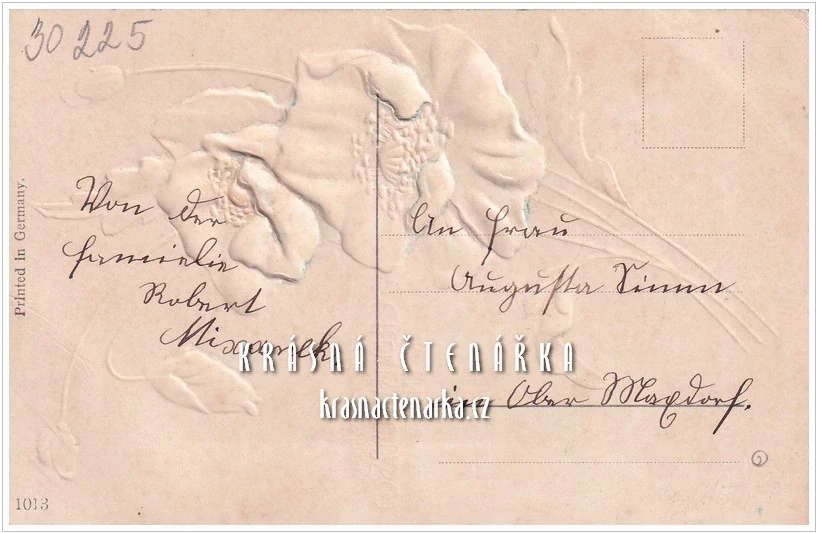 30225
Printed in Germany.
Von der
Familie
Robert
An Frau
Augusta Simm
in Ober Maxdorf.
KRÁSNÁ ČTENÁŘKA
krasnactenarka.cz
1013